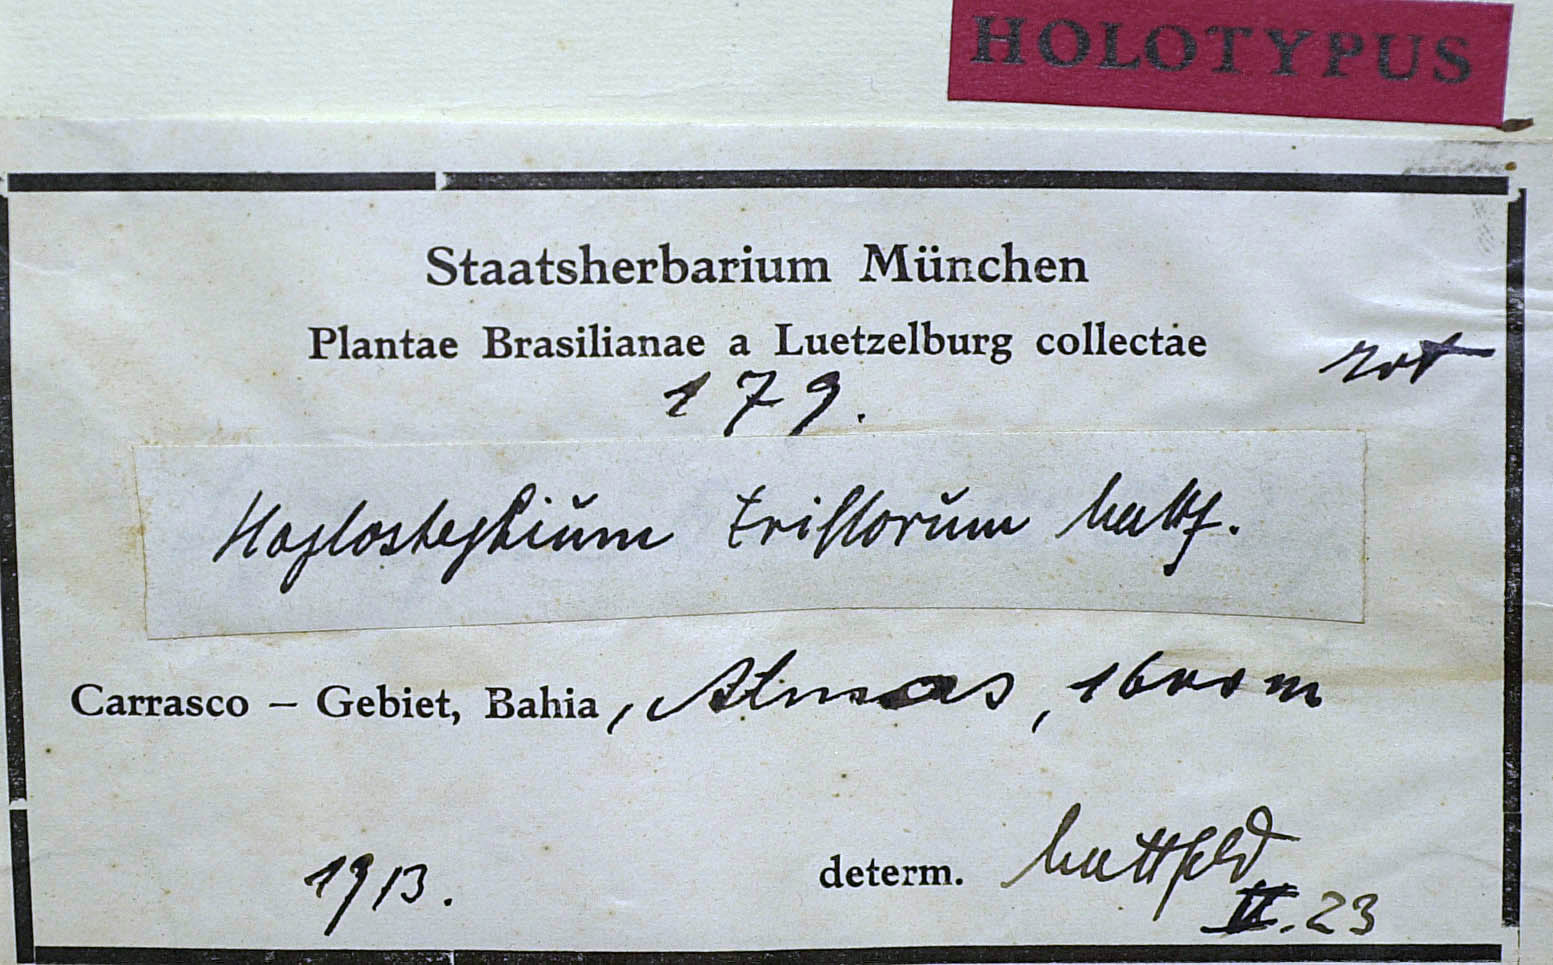 HOLOTYPUS
Staatsherbarium München
Plantae Brasilianae a Luetzelburg collectae
rot
179.
Haplostephium triflorum Mattf.
Carrasco – Gebiet, Bahia, Almas, 1600 m
1913.
determ. Mattfeld
II.23